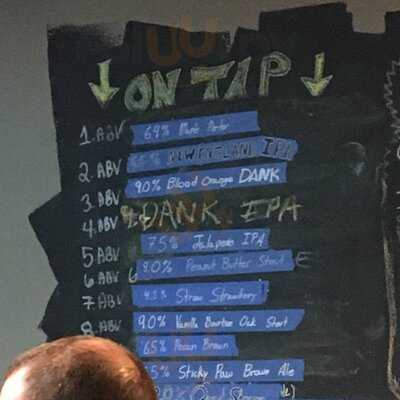 ON TAP
1. ABV 6.9% Porter
2. ABV NEW ENGLAND IPA
3. ABV 9.0% Blood Orange DANK
4. ABV DANK IPA
5. ABV 7.5% Jalapeno IPA
6. ABV 8.0% Peanut Butter Stout
7. ABV Straw Strawberry
8. ABV 9.0% Vanilla Bourbon Oak Stout
6.5% Pecan Brown
Sticky Paw Brown Ale